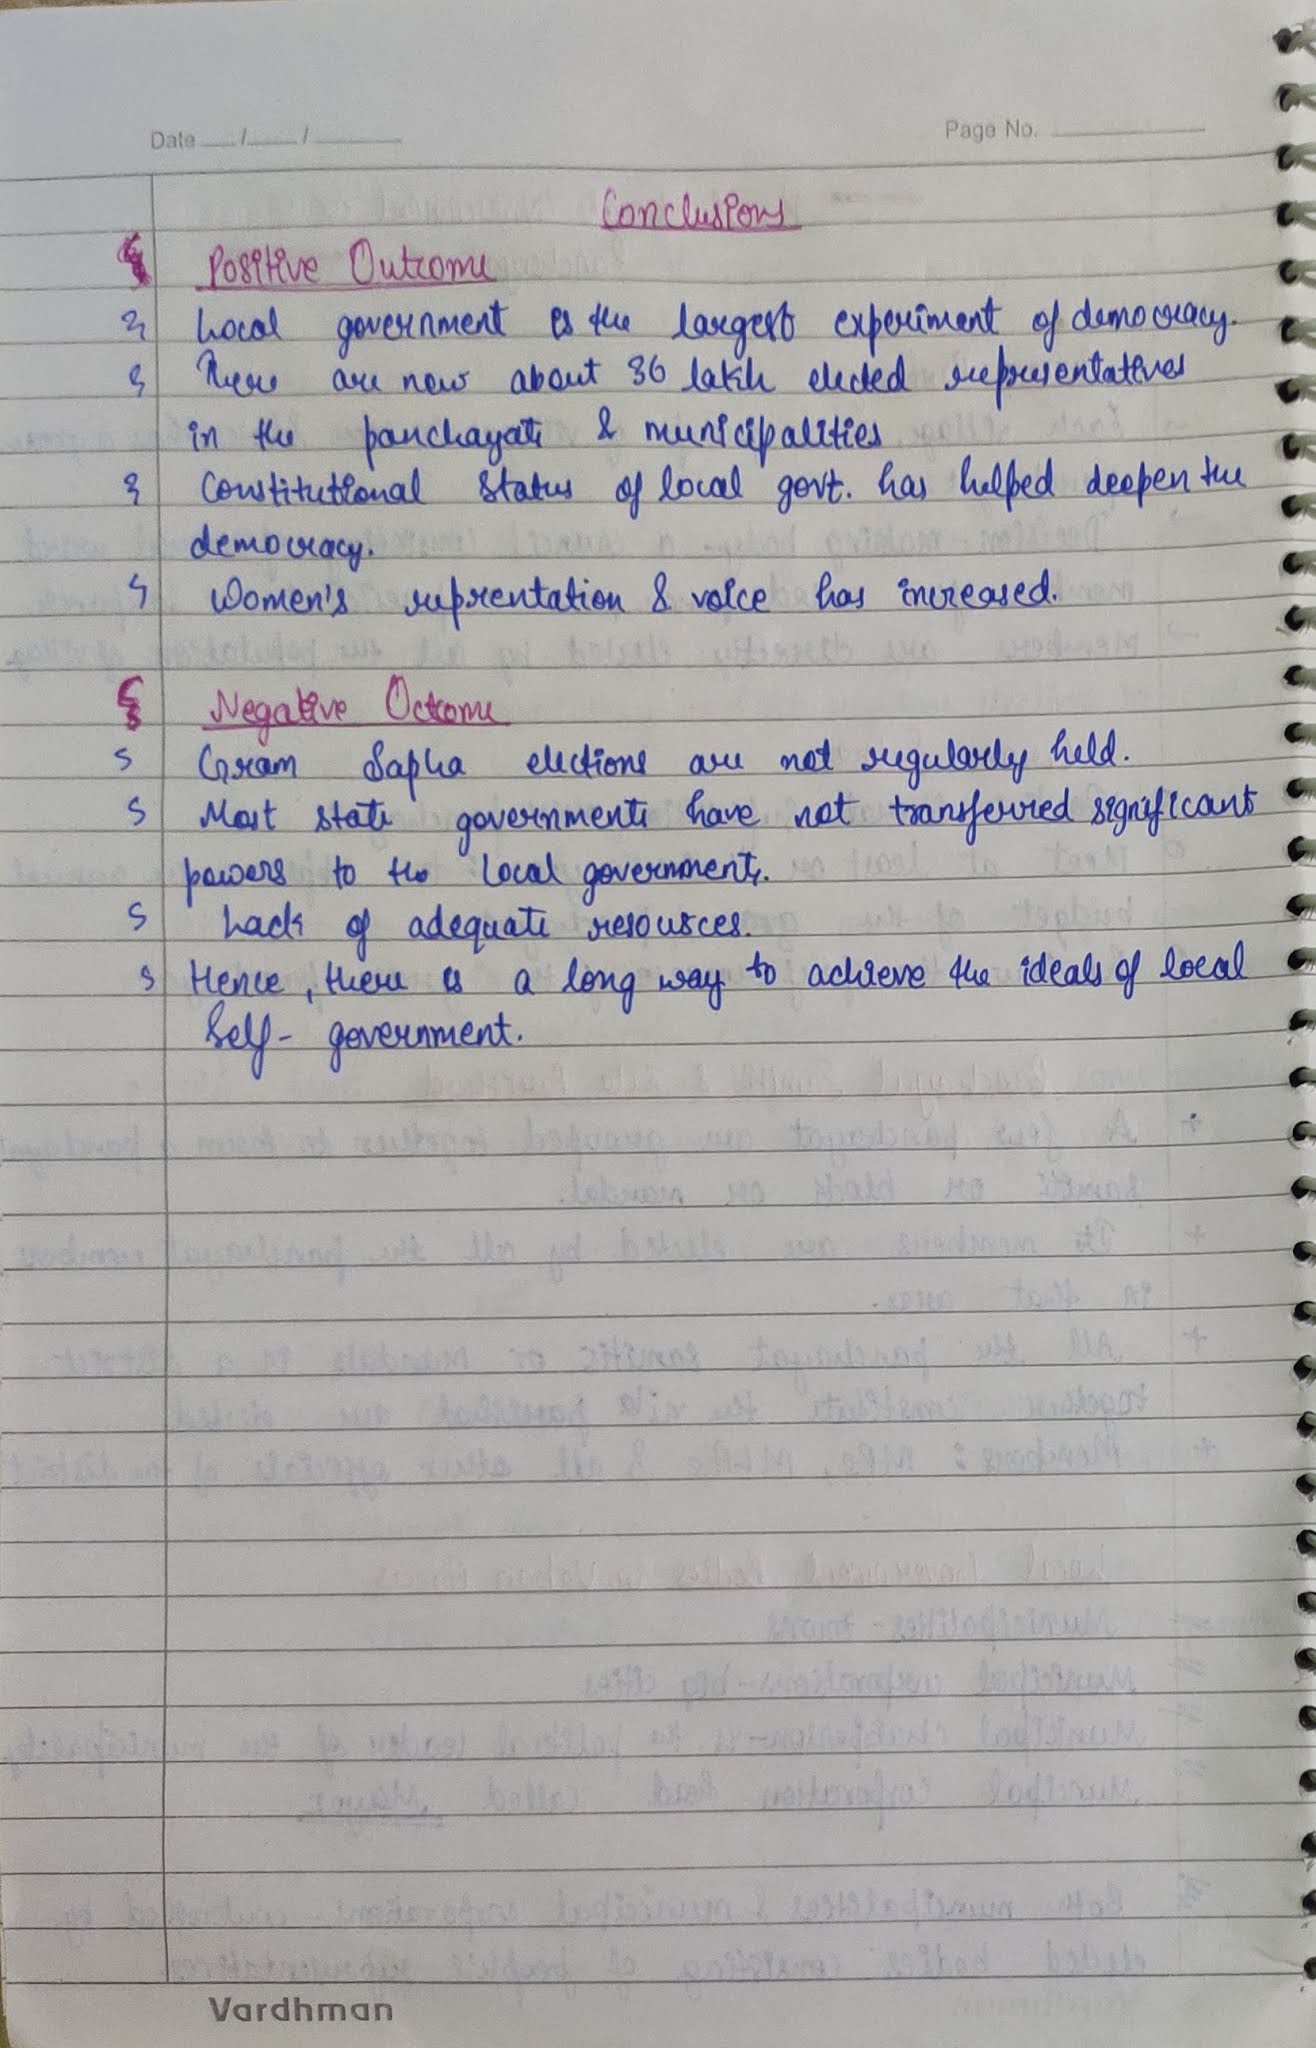 Date __/__/____
Page No. ________
Conclusions
Positive Outcome
Local government is the largest experiment of democracy.
There are now about 36 lakh elected representatives
in the panchayats & municipalities
Constitutional status of local govt. has helped deepen the
democracy.
Women's reprentation & voice has increased.
Negative Octcome
Gram Sapha elections are not regularly held.
Most state governments have not transferred significant
powers to the local governments.
Lack of adequate resources.
Hence, there is a long way to achieve the ideals of local
Self- government.
Vardhman